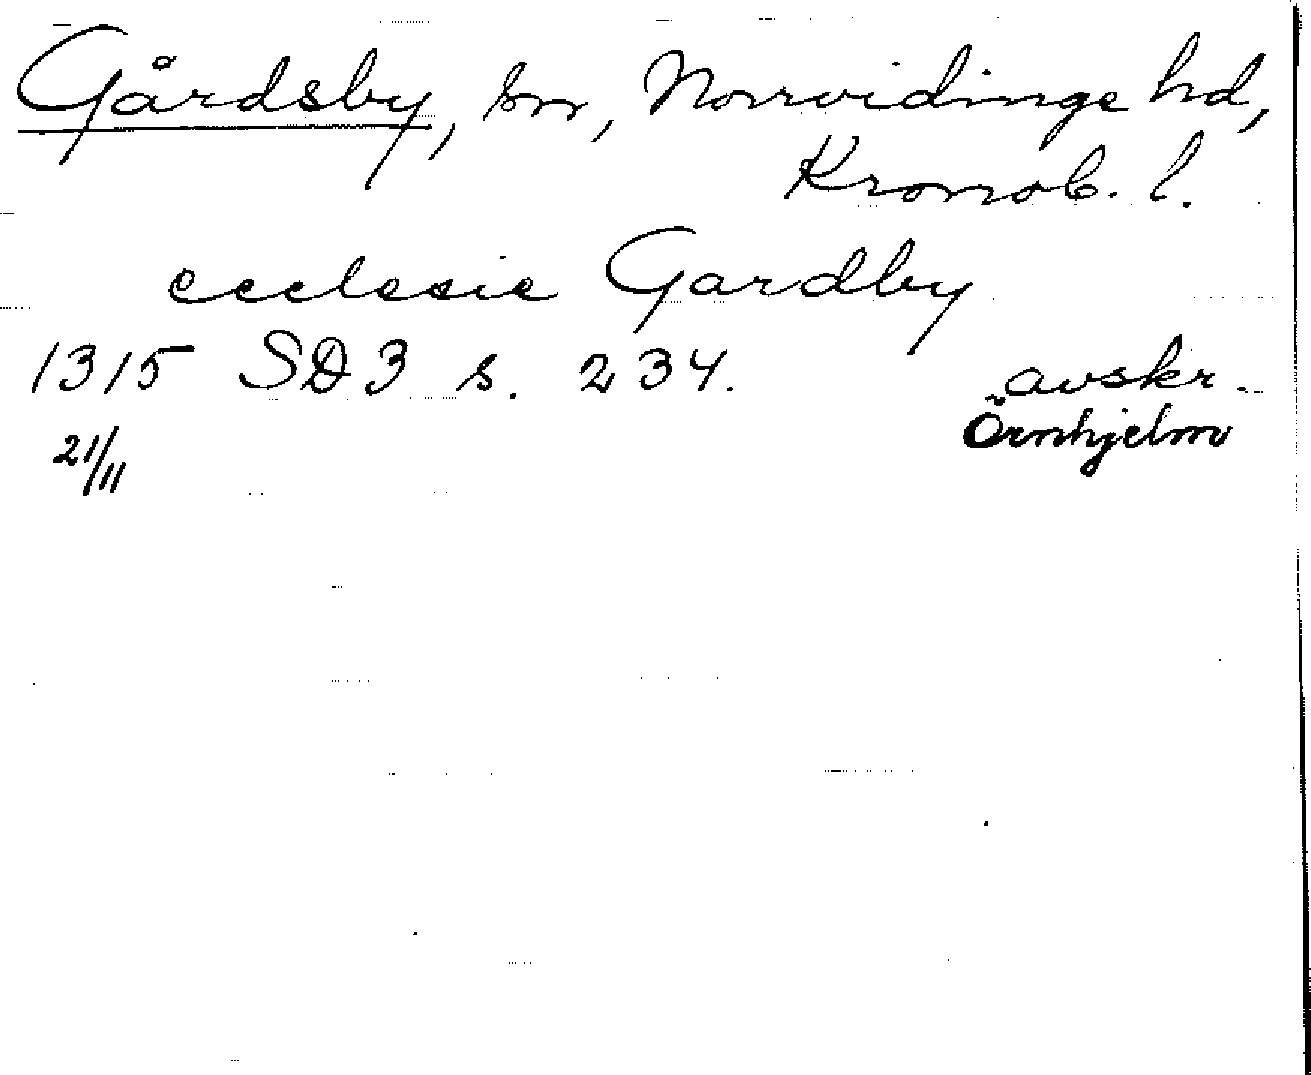 Gårdsby, sn, Norrvidinge hd,
Kronob. l.
ecclesie Gardby
1315 SD 3 s. 234. avskr.
21/11 Örnhjelm